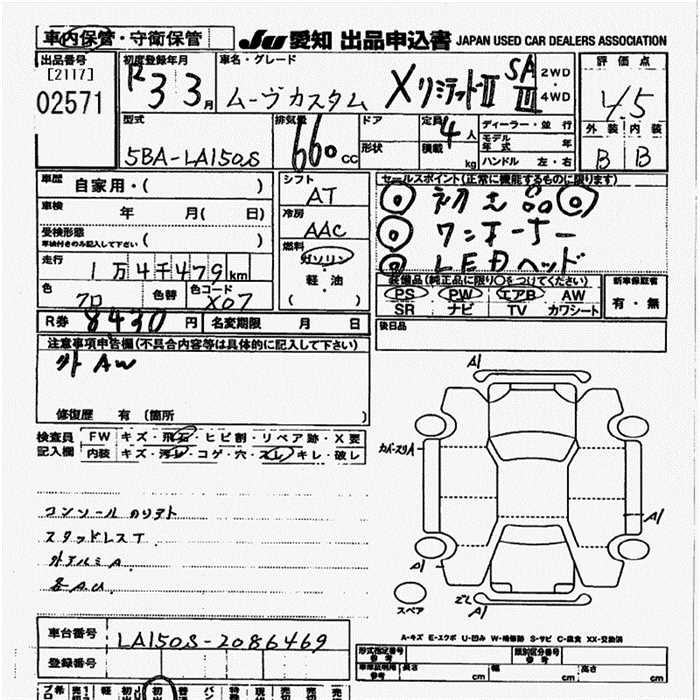 車内保管・守衛保管 JU 愛知 出品申込書 JAPAN USED CAR DEALERS ASSOCIATION
出品番号 [2117] 02571
初度登録年月 R3 3月
車名・グレード ムーヴカスタム XリミテッドII SAIII 2WD・4WD
評価点 4/5
外装 内装
B B
型式 5BA-LA150S
排気量 660cc
ドア
形状
定員 4人
積載 kg
ディーラー・並行
モデル年式 年
ハンドル 左・右
車歴 自家用・( )
車検 年 月( 日)
受検形態 車検付きのみ記入して下さい ( )
走行 1万4千479km
色 クロ 色替 色コード X07
シフト AT
冷房 AAC
燃料 ガソリン・軽油 ( )
セールスポイント(正常に機能するものに限ります)
◎ワンオーナー
◎LEDヘッド
装備品(純正品に限り○をつけてください)
PS PW エアB AW
SR ナビ TV カワシート
新車保証書 有・無
R券 8430円 名変期限 月 日
後日品
注意事項申告欄(不具合内容等は具体的に記入して下さい)
外 AW
修復歴 有 (箇所 )
検査員記入欄
FW キズ・飛石・ヒビ割・リペア跡・X要
内装 キズ・汚レ・コゲ・穴・スレ・キレ・破レ
A1
カバースリA
A1
A1
A1
スペア
コンソールのリヤト
スタッドレスT
外アルミA
各AU
車台番号 LA150S-2086469
登録番号
A-キズ E-エクボ U-凹み W-補修跡 S-サビ C-腐食 XX-交換済
型式指定番号 参考 類別区分番号 参考
車庫証明用 参考 長さ cm 幅 cm 高さ cm